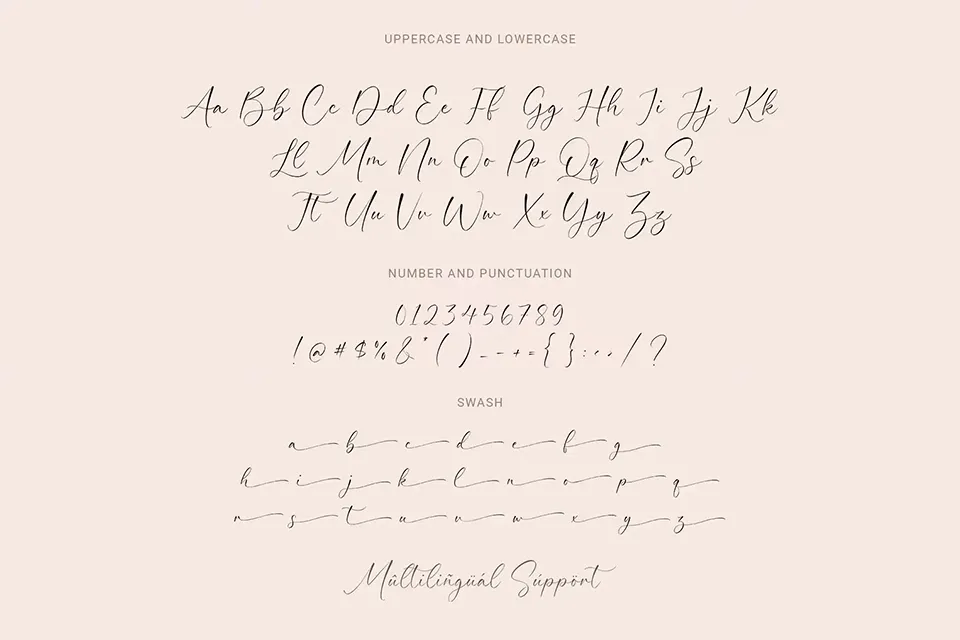 UPPERCASE AND LOWERCASE
Aa Bb Cc Dd Ee Ff Gg Hh Ii Jj Kk
Ll Mm Nn Oo Pp Qq Rr Ss
Tt Uu Vv Ww Xx Yy Zz
NUMBER AND PUNCTUATION
0123456789
!@#$%&*()_-+={}:;,./?
SWASH
a b c d e f g
h i j k l n o p q
r s t u v w x y z
Mûltiliñgüál Súppört